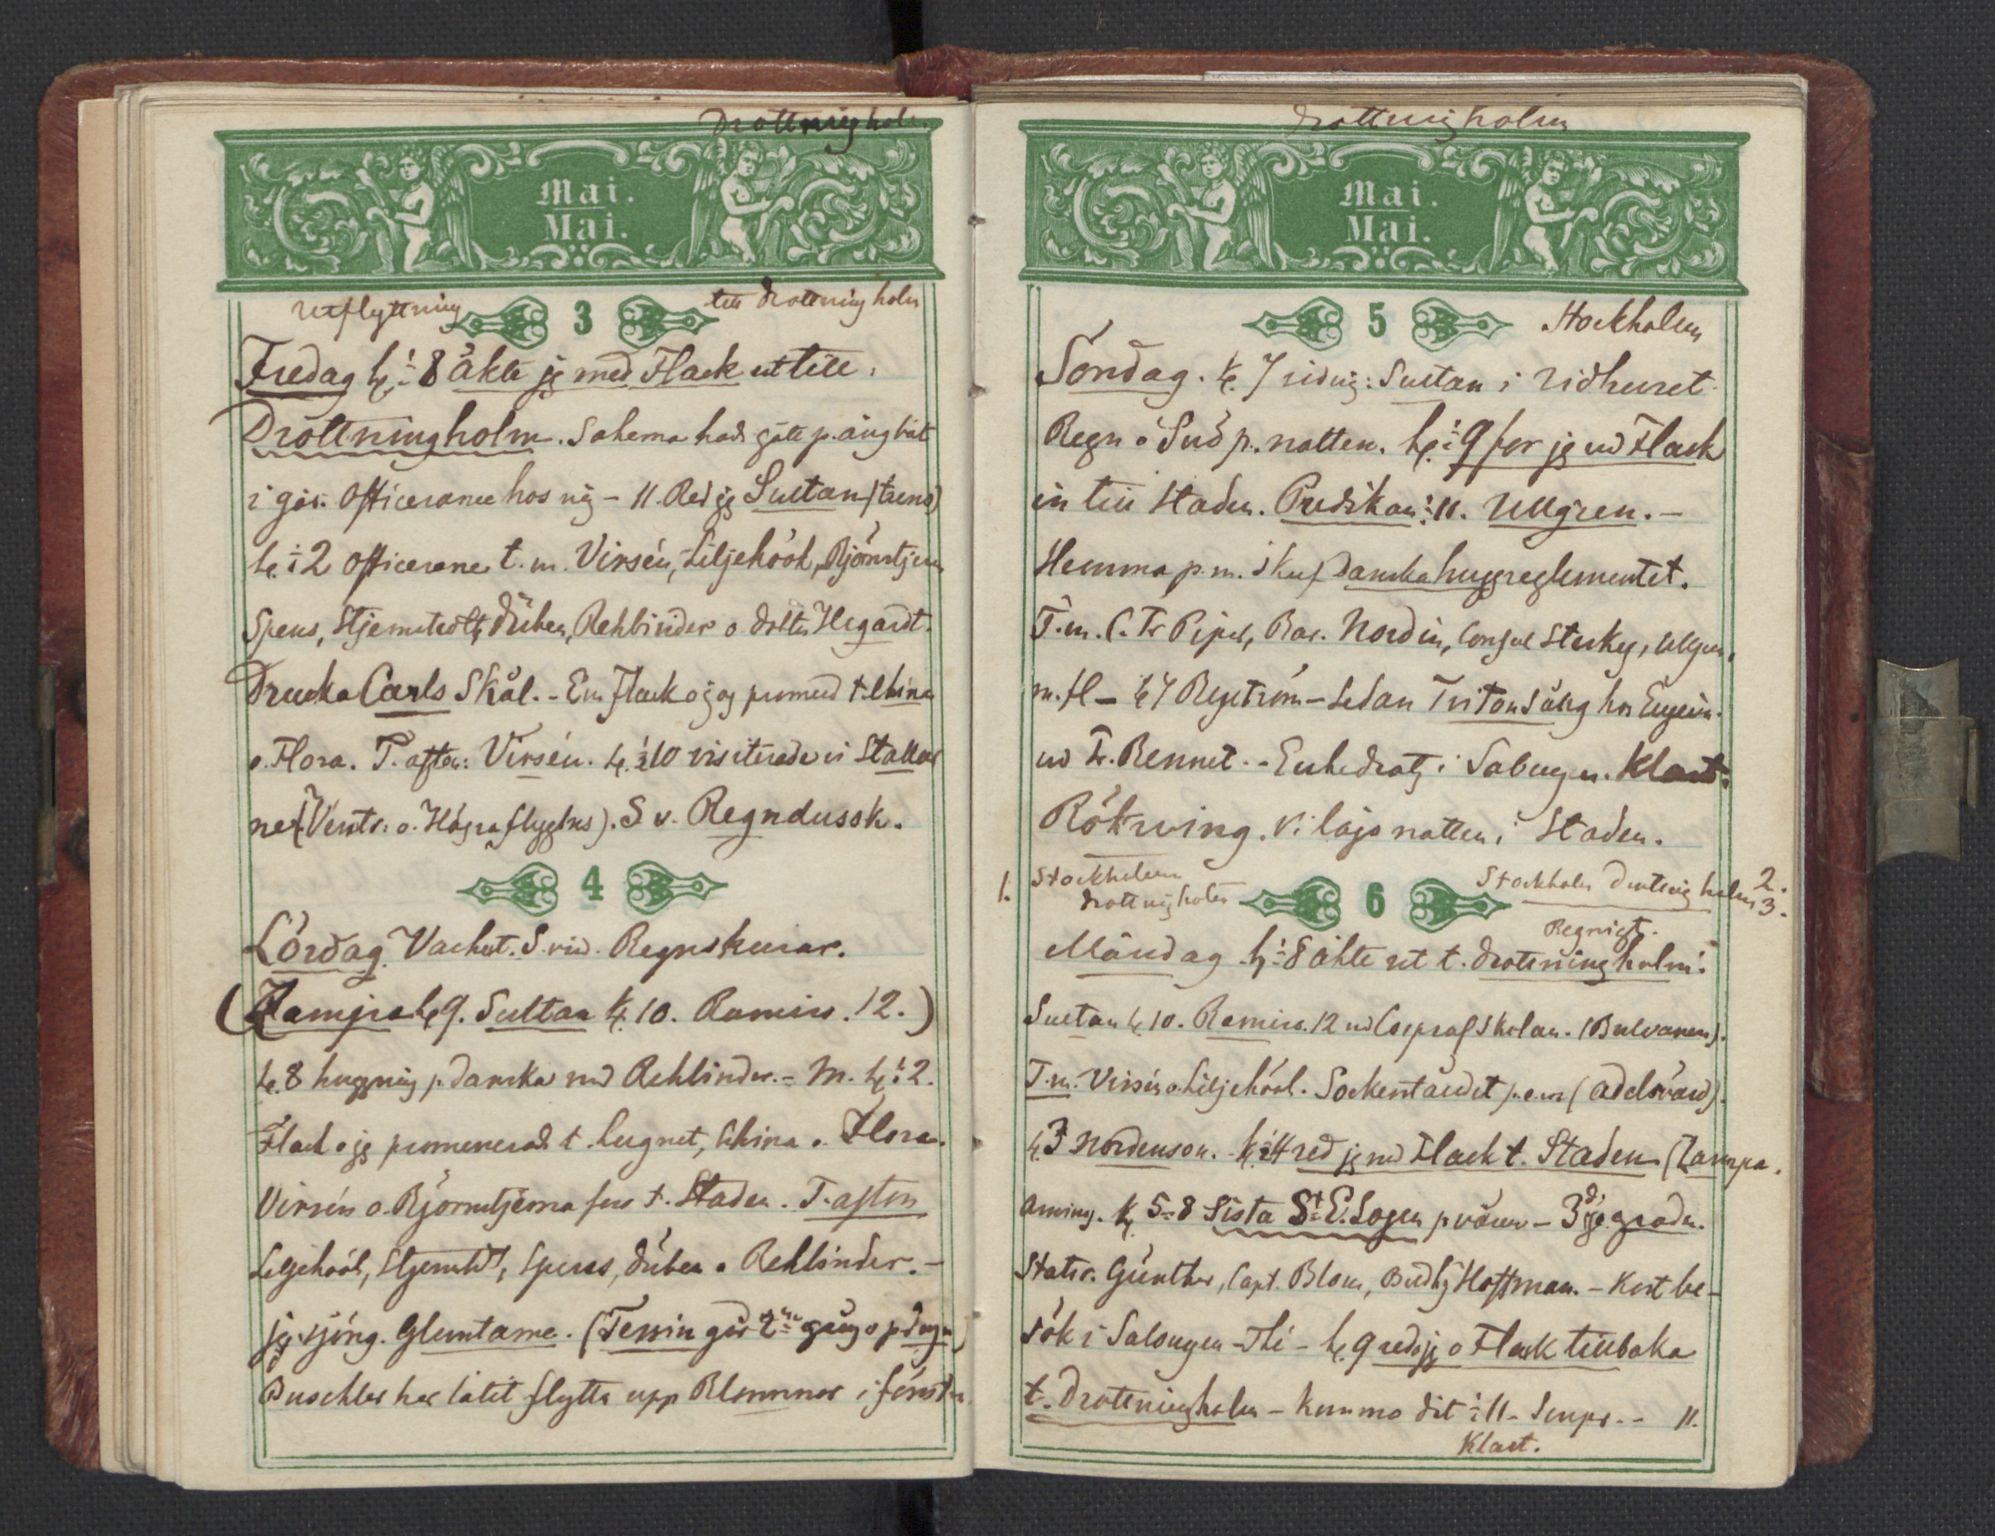 Drottningholm
Mai.
Mai.
Utflyttning 3 till Drottningholm
Fredag kl. ½ 8 åkte jg med Flack ut till
Drottningholm. Sakerna hade gått p. ångbåt
i går. Officerarne hos mig – 11. Red jg Sultan (trens)
kl. ½ 2 Officerarne t. m. Virsén, Liljehöök, Björnstjerna
Spens, Stjernstedt, Düben, Rehbinder o. doktr Hegardt.
Drucko Carls Skål. – Em. Flack o jag promend t. China
o. Flora. T. afton: Virsén. kl. ½ 10 visiterade vi Stallar
ne (Venstr: o. Högra flyglns). S v. Regndussk.
4
Lördag. Vackert. S. vind. Regnskurar.
(Zampa kl 9. Sultan kl. 10. Ramiro. 12.)
kl. 8 huggning p. danska med Rehbinder. – M. kl. ½ 2.
Flack o jg promenerade t. Lugnet, China o. Flora.
Virsén o. Björnstjerna foro t. Staden. T. afton
Liljehöök, Stjernstdt, Spens, Düben o Rehbinder. –
jg sjöng. Gluntarne. (Tessin går 2ne gång o p dagen)
Buschler har låtit flytta upp Blommor i fönstr
Drottningholm
Mai.
Mai.
5 Stockholm
Söndag. kl. 7 ridnig: Sultan i ridhuset.
Regn o Snö p. natten. kl. ½ 9 for jg md Flack
in till Staden. Predikan ½ 11. Ullgren. –
Hemma p. m. skref danska huggreglementet.
T. m. C. Fr Piper, Bar. Nordin, Consul Sterky, Ullgren,
m. fl – kl 7 Byström – Sedan Triton Sång hos Eugenie
md Fr. Bennet. – Enkedrotg i Salongen. Klart.
Rökning. Vi lågo natten i Staden.
1. Stockholm
Drottnigholm 6 Stockholm Drottnigholm 2.
3.
Regnigt.
Måndag kl. ½ 8 åkte ut t. Drottningholm.
Sultan kl 10. Ramiro. 12 md Corpralskolan. (Bulvanen).
T. m. Virsén o. Liljehöök. Sockenståndet p. e. m (Adelsvärd).
kl. 3 Nordenson. kl. ½ 4 red jg md Flack t. Staden (Zampa.
Aminy. kl 5–8 Sista St E. Logen p våren – 3dje graden.
Statsr. Günther, Capt. Blom, Budhg Hoffman. – Kort be–
sök i Salongen – Thé – kl. 9 red jg o Flack tillbaka
t. Drottningholm – kommo dit ½ 11 – Soupr. – 11.
Klart.